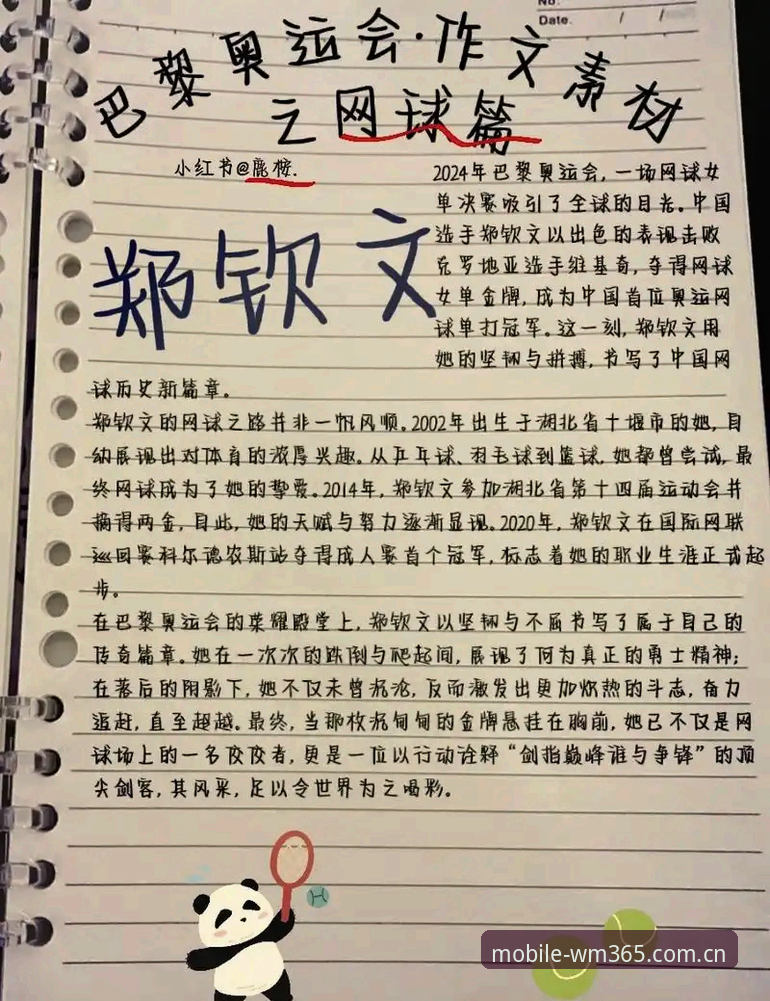 No.
Date. / /
巴黎奥运会·作文素材
之网球篇
小红书@鹿桉.
郑钦文
2024年巴黎奥运会,一场网球女
单决赛吸引了全球的目光。中国
选手郑钦文以出色的表现击败
克罗地亚选手维基奇,夺得网球
女单金牌,成为中国首位奥运网
球单打冠军。这一刻,郑钦文用
她的坚韧与拼搏,书写了中国网
球历史新篇章。
郑钦文的网球之路并非一帆风顺。2002年出生于湖北省十堰市的她,自
幼展现出对体育的浓厚兴趣。从乒乓球、羽毛球到篮球,她都曾尝试,最
终网球成为了她的挚爱。2014年,郑钦文参加湖北省第十四届运动会并
摘得两金,自此,她的天赋与努力逐渐显现。2020年,郑钦文在国际网联
巡回赛科尔德农斯站夺得成人赛首个冠军,标志着她的职业生涯正式起
步。
在巴黎奥运会的荣耀殿堂上,郑钦文以坚韧与不屈书写了属于自己的
传奇篇章。她在一次次的跌倒与爬起间,展现了何为真正的勇士精神;
在落后的阴影下,她不仅未曾沉沦,反而激发出更加炽热的斗志,奋力
追赶,直至超越。最终,当那枚沉甸甸的金牌悬挂在胸前,她已不仅是网
球场上的一名佼佼者,更是一位以行动诠释“剑指巅峰谁与争锋”的顶
尖剑客,其风采,足以令世界为之喝彩。
mobile-wm365.com.cn